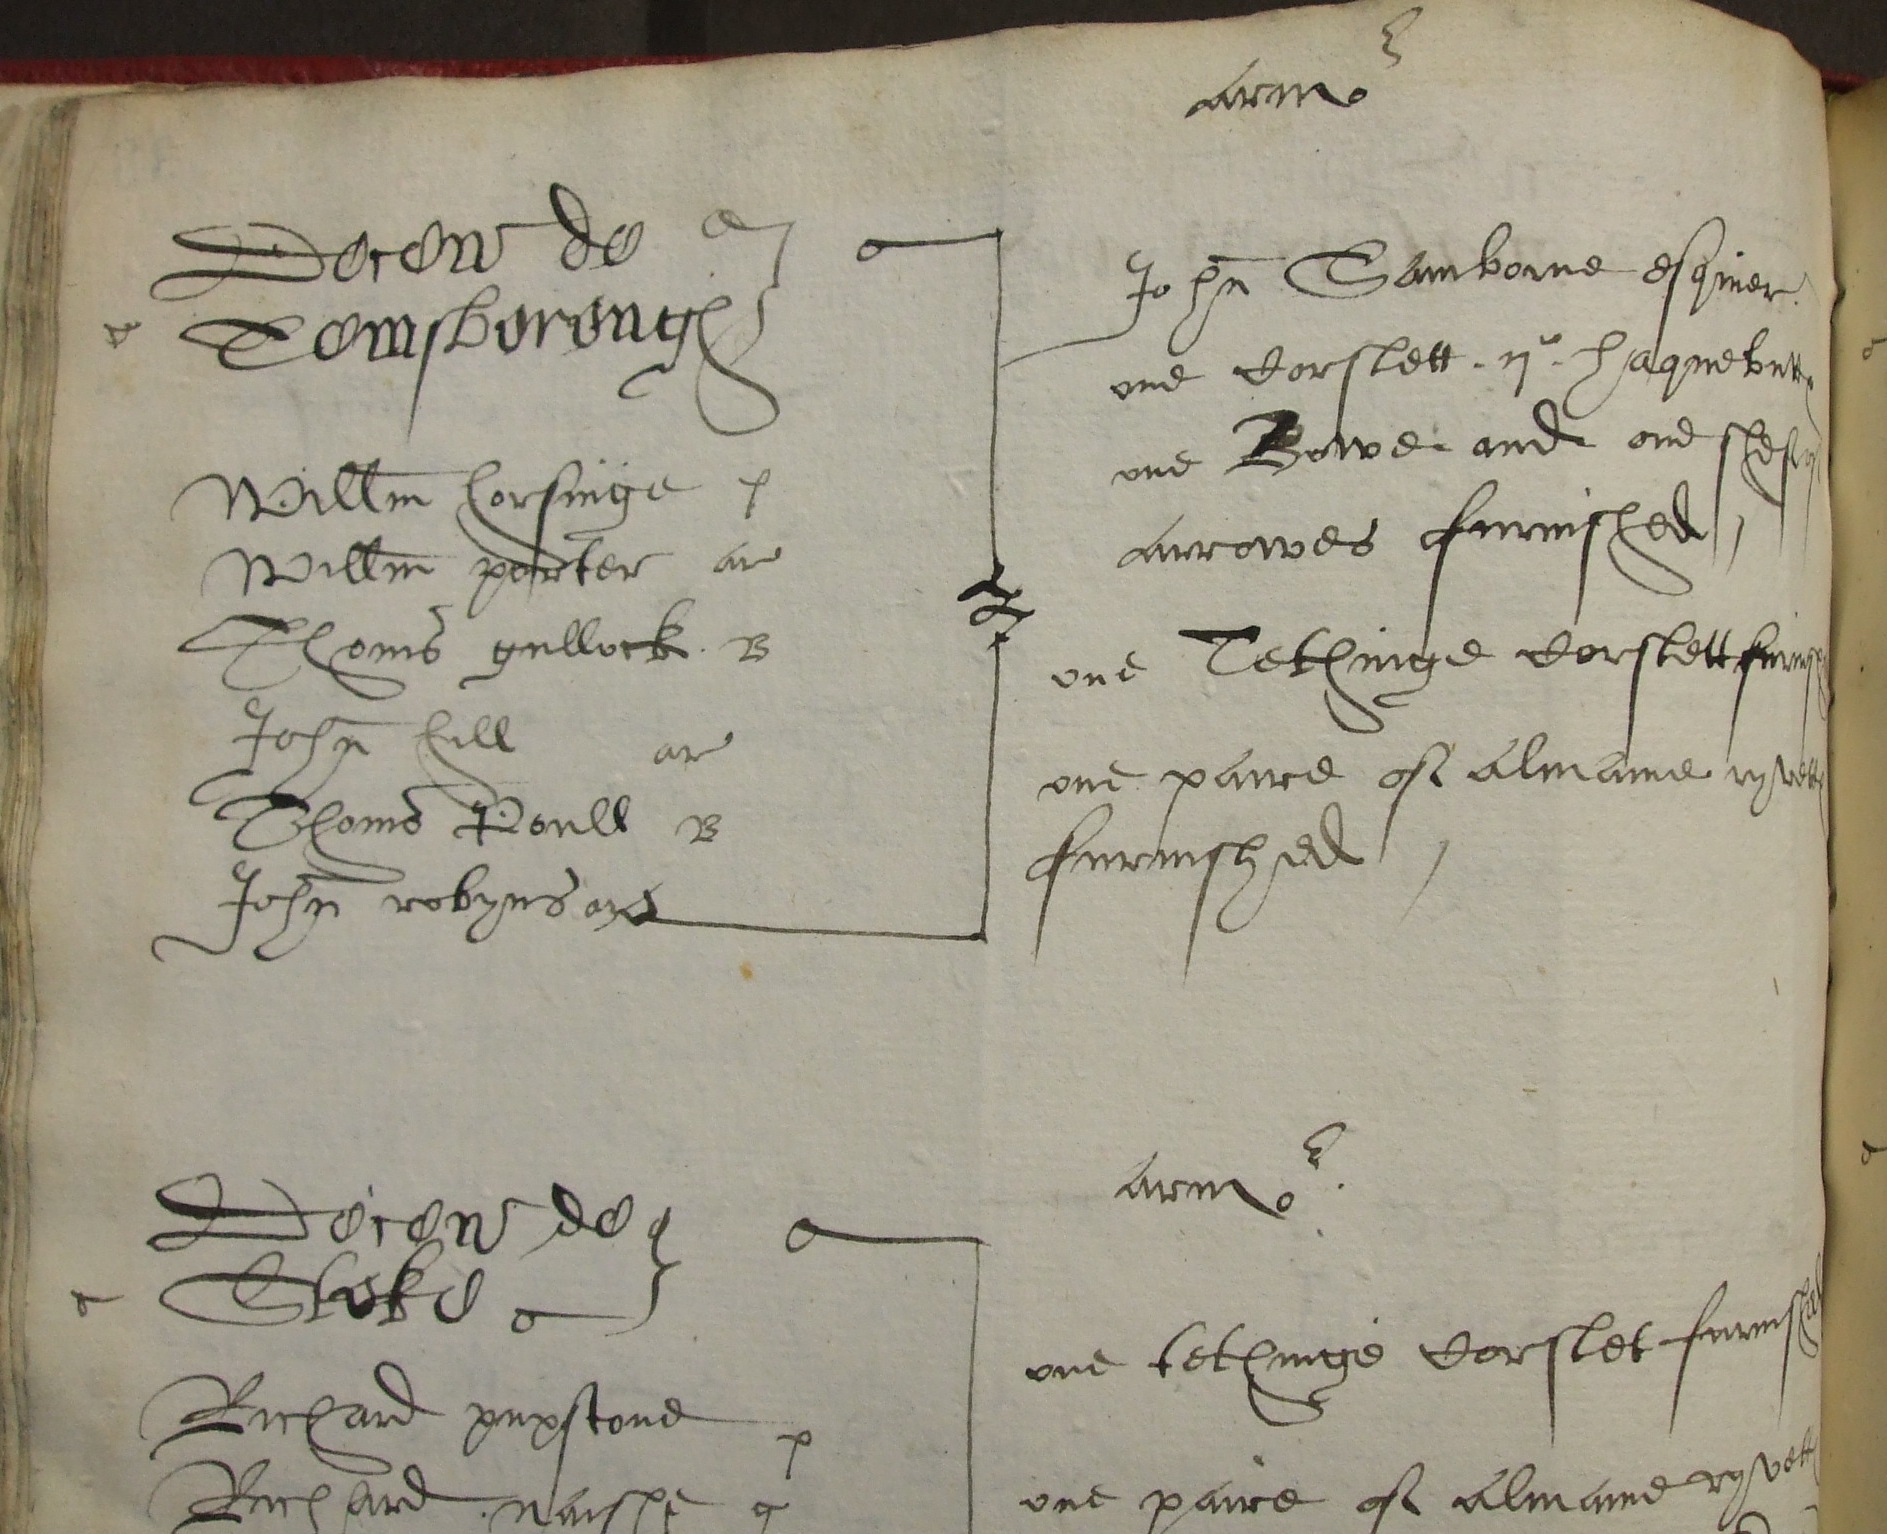 armor
Decen de
Temsborough
Willm horsinge p
Willm porter ar
Thoms gullock B
John hill ar
Thoms Poull B
John robyns ar
John Samborne esquier
one Corslett ij haquebutt
one Bowe and one shef of
arrowes furnished
one Tethinge Corslett furnish
one paire of Almaine ryvetts
furnished
armor
Decen de
Stoke
Richard pupstone p
Richard naishe g
one tethinge Corslet furnished
one paire of Almaine ryvett